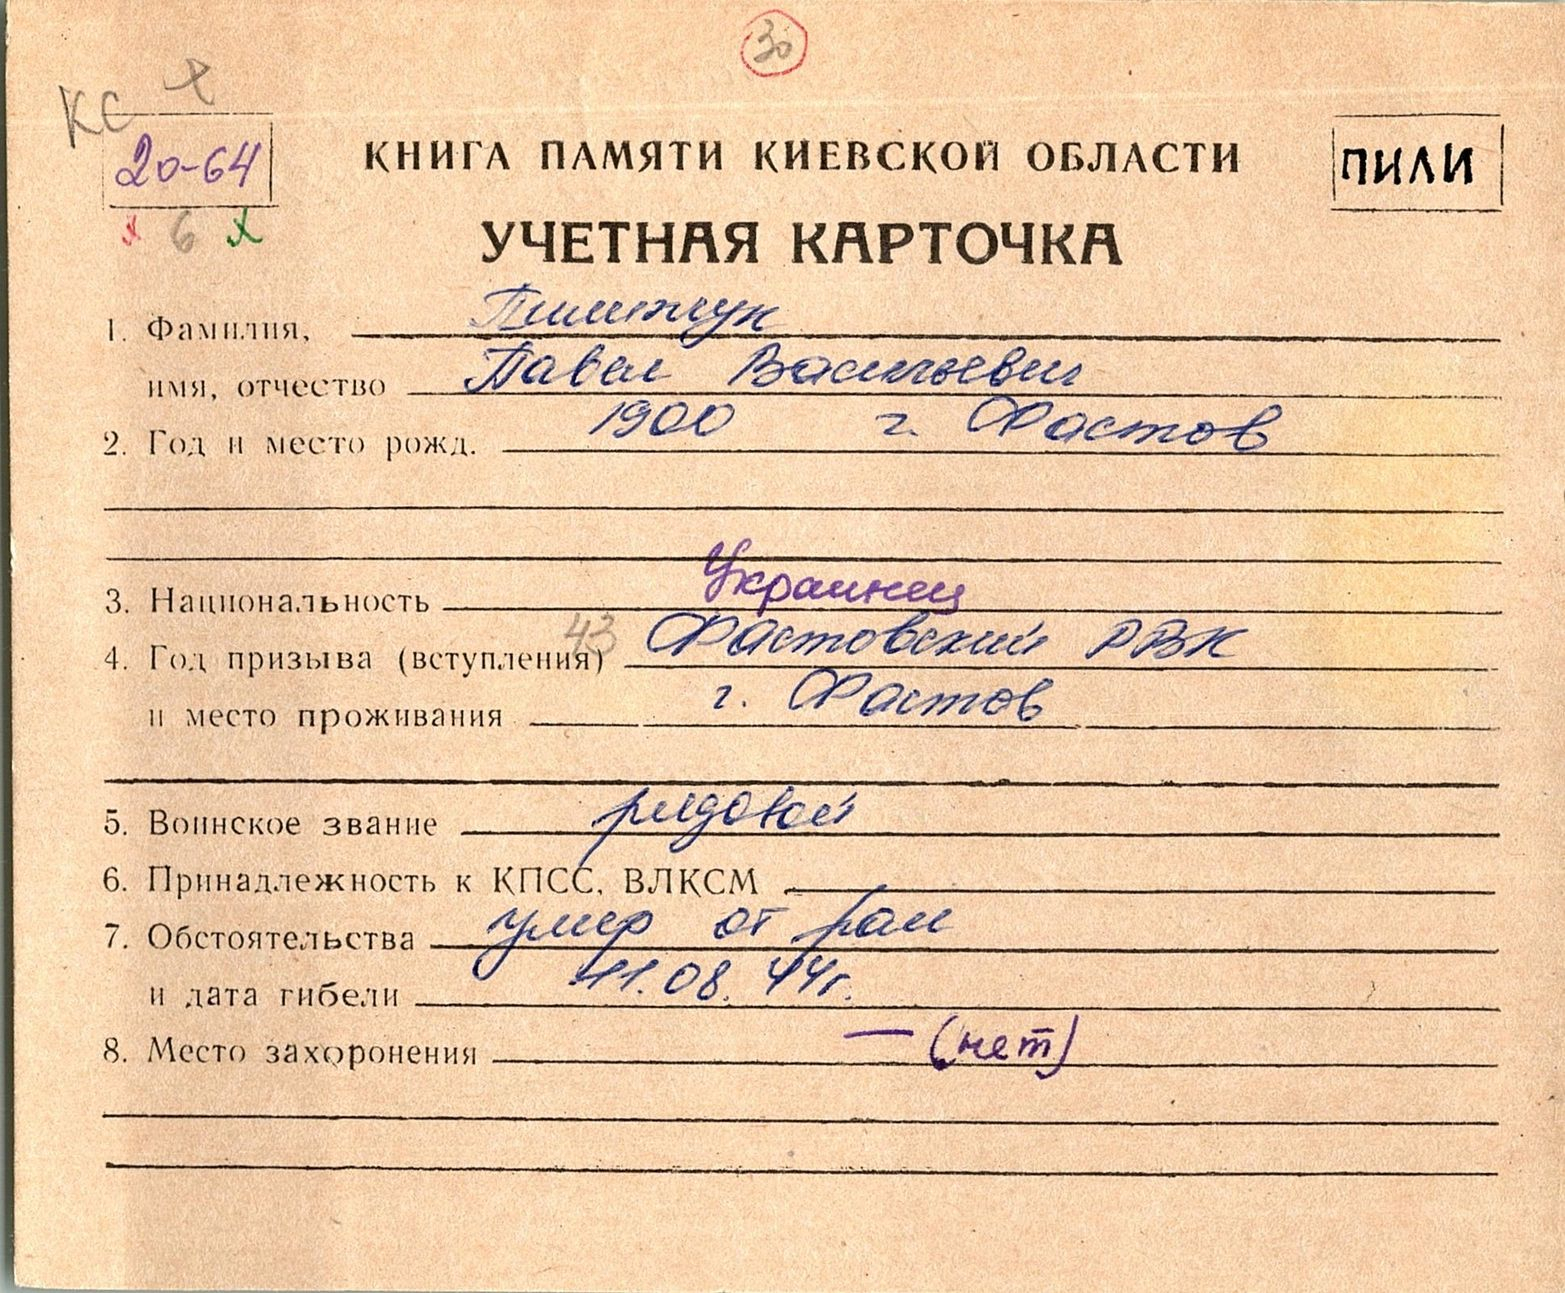 30
КС х
20-64
КНИГА ПАМЯТИ КИЕВСКОЙ ОБЛАСТИ
ПИЛИ
х 6 х
УЧЕТНАЯ КАРТОЧКА
1. Фамилия, Пилипчук
имя, отчество Павел Васильевич
2. Год и место рожд. 1900 г. Фастов
3. Национальность Украинец
4. Год призыва (вступления) 43 Фастовский РВК
и место проживания г. Фастов
5. Воинское звание рядовой
6. Принадлежность к КПСС, ВЛКСМ
7. Обстоятельства умер от ран
и дата гибели 11.08.44г.
8. Место захоронения — (нет)